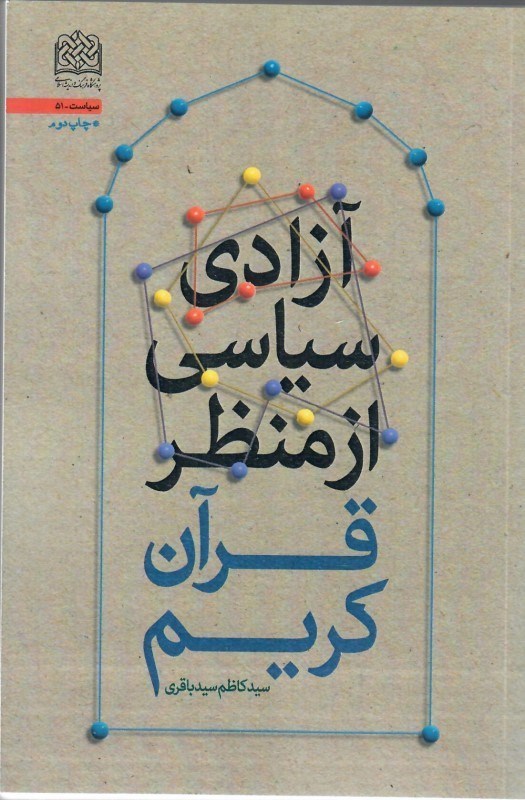 پژوهشگاه فرهنگ و اندیشه اسلامی
سیاست-۵۱
چاپ دوم
آزادی
سیاسی
از منظر
قرآن
کریم
سید کاظم سیدباقری